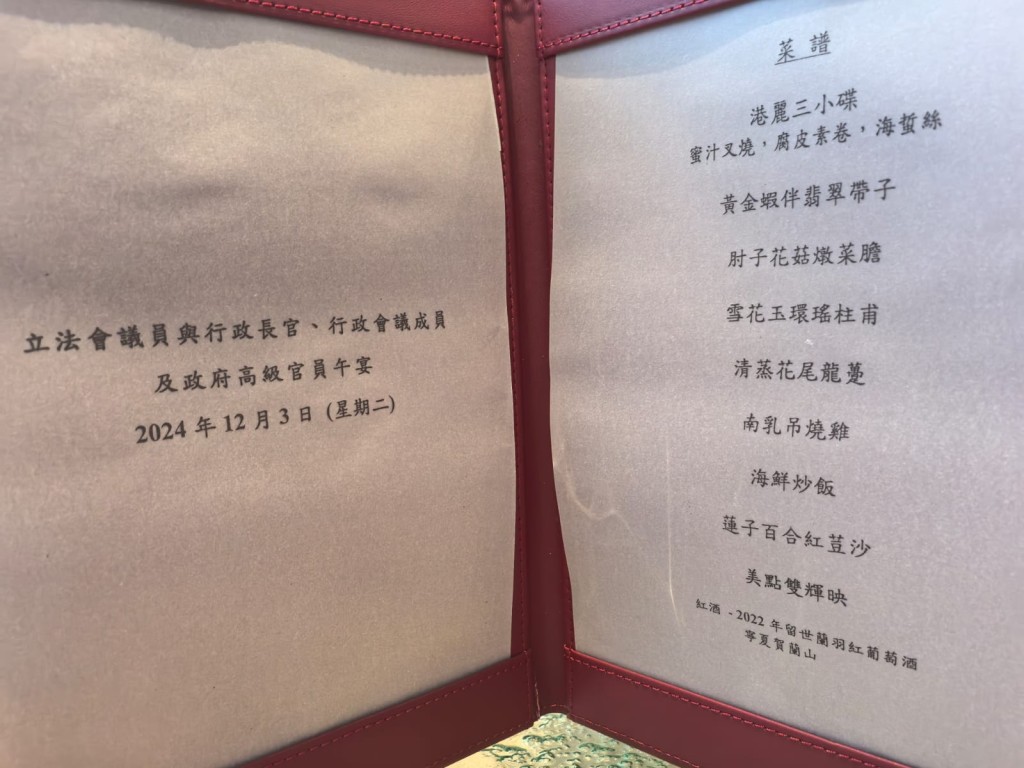 立法會議員與行政長官、行政會議成員
及政府高級官員午宴
2024 年 12 月 3 日 (星期二)
菜譜
港麗三小碟
蜜汁叉燒，腐皮素卷，海蜇絲
黃金蝦伴翡翠帶子
肘子花菇燉菜膽
雪花玉環瑤柱甫
清蒸花尾龍躉
南乳吊燒雞
海鮮炒飯
蓮子百合紅荳沙
美點雙輝映
紅酒 - 2022 年留世蘭羽紅葡萄酒
寧夏賀蘭山